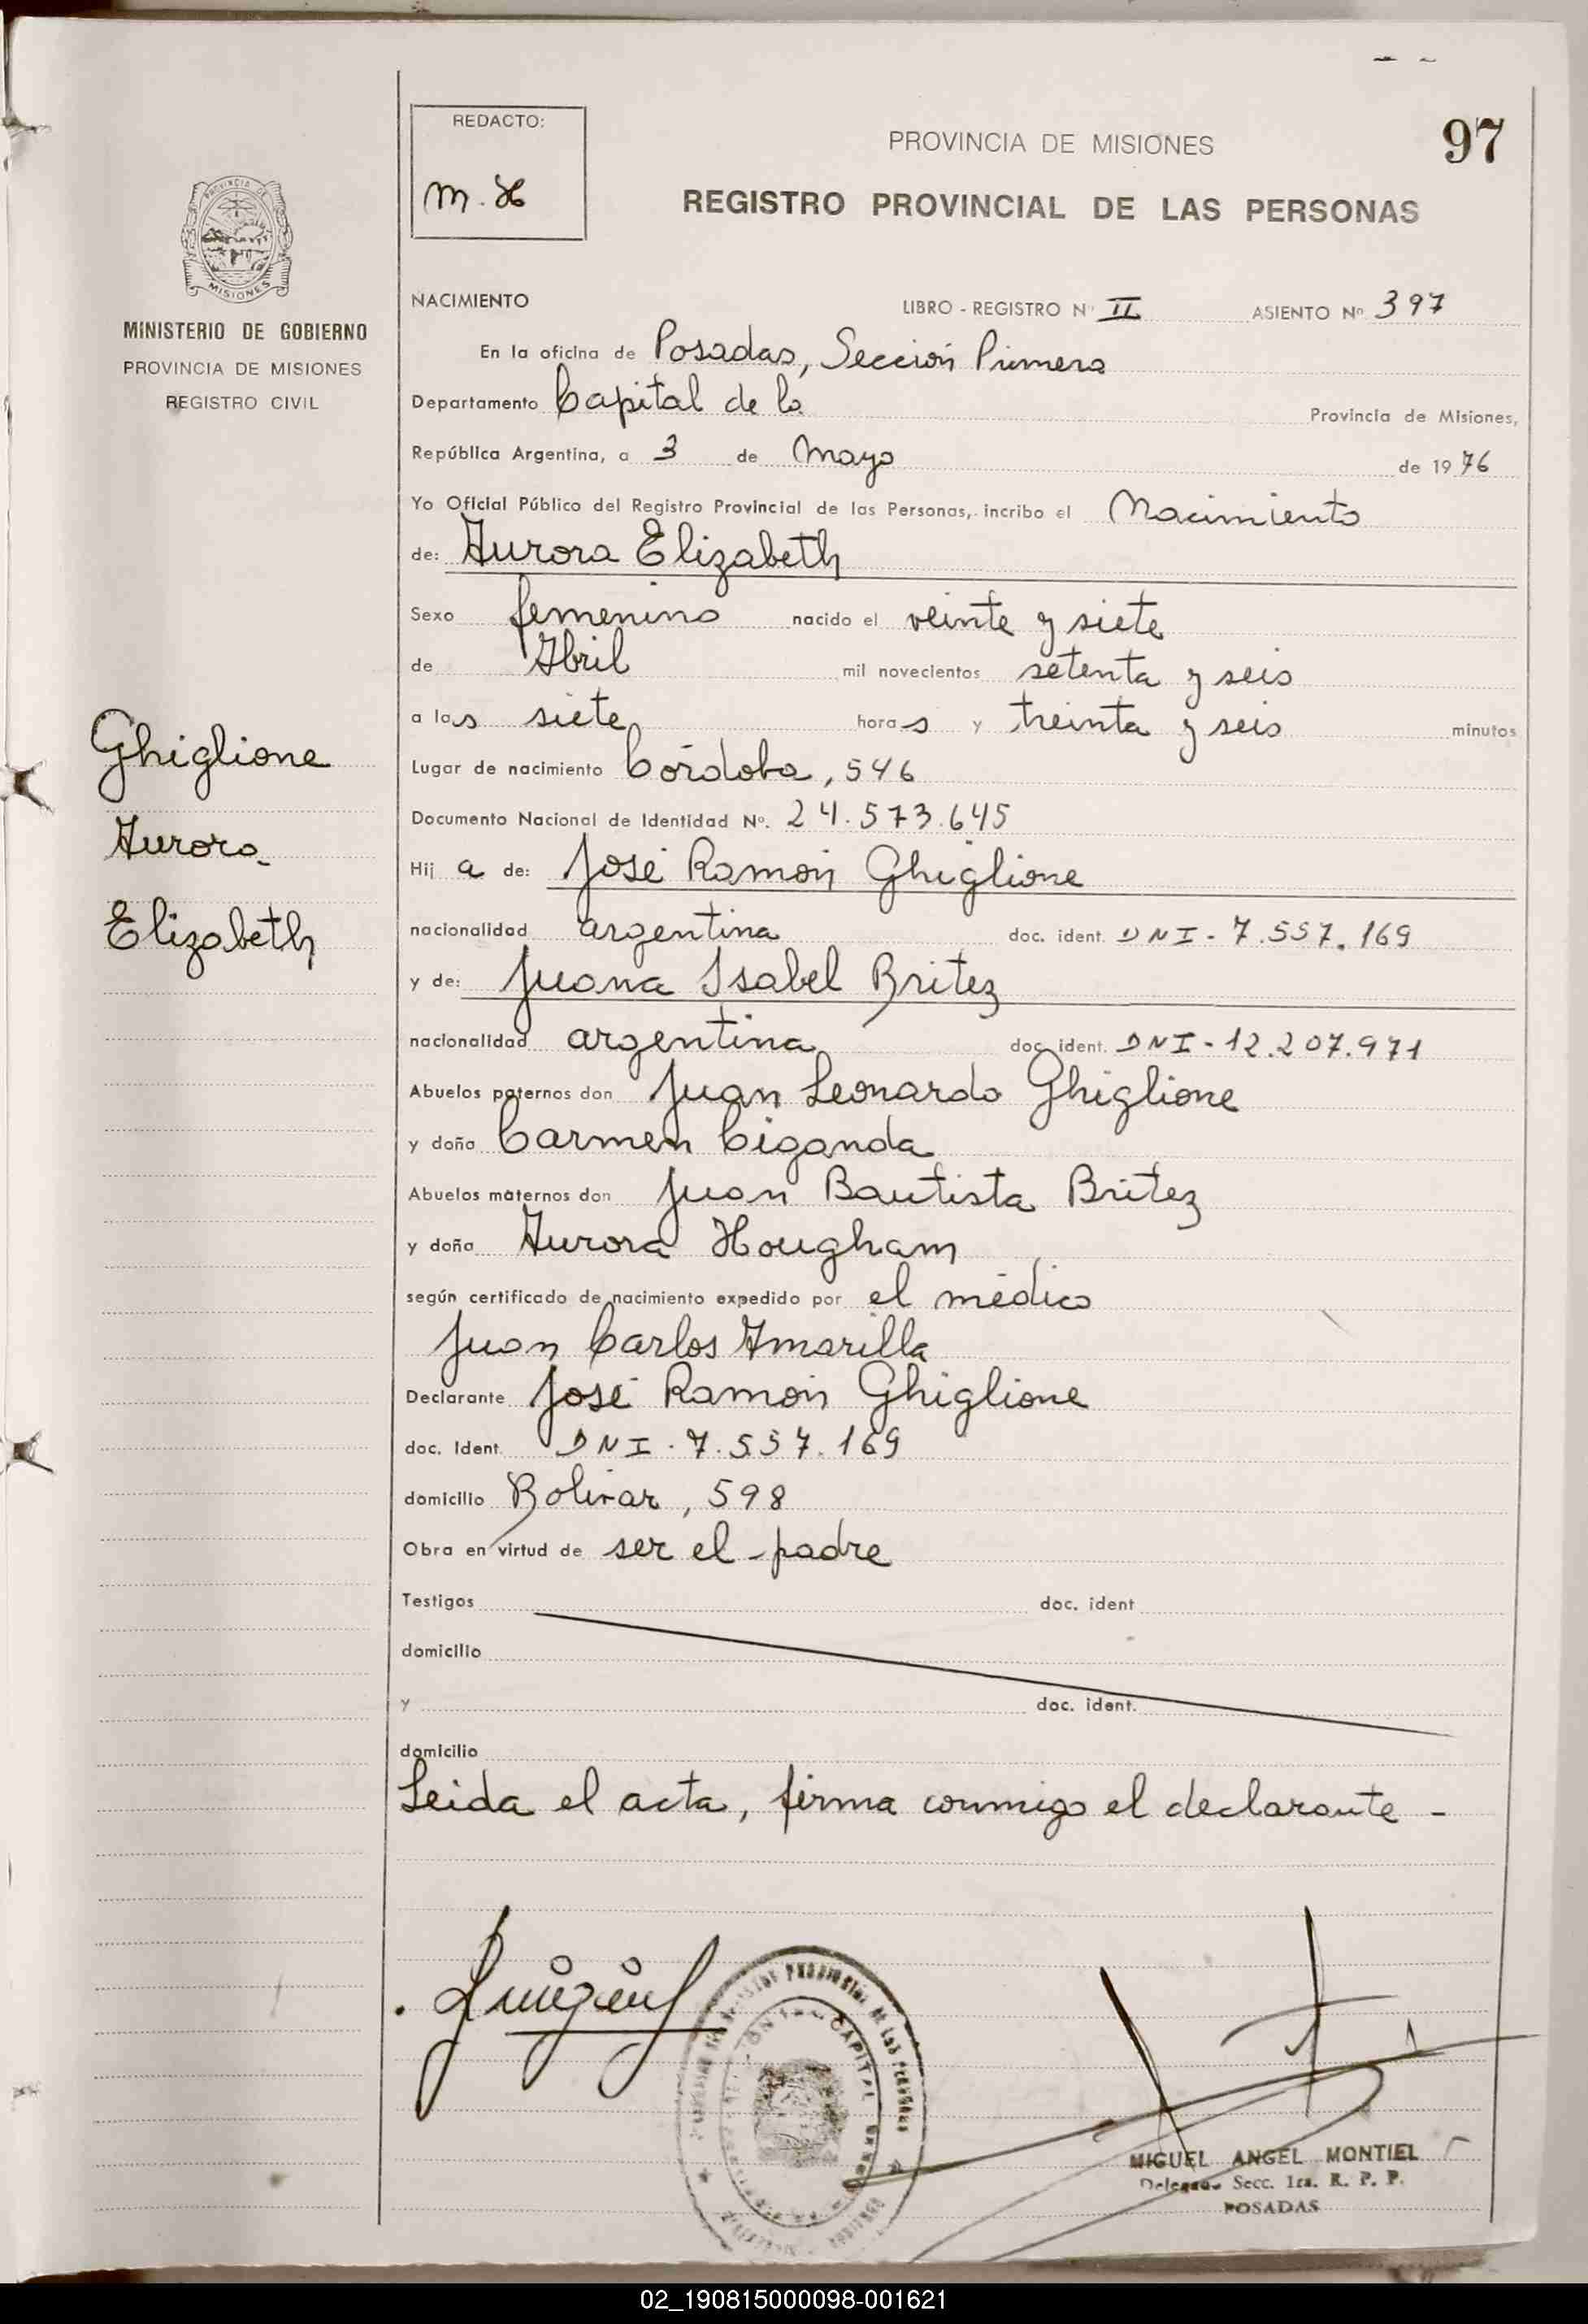 97
REDACTO:
M. H
PROVINCIA DE MISIONES
REGISTRO PROVINCIAL DE LAS PERSONAS
PROVINCIA DE
MISIONES
MINISTERIO DE GOBIERNO
PROVINCIA DE MISIONES
REGISTRO CIVIL
Ghiglione
Aurora
Elizabeth
NACIMIENTO LIBRO - REGISTRO Nº II ASIENTO Nº 397
En la oficina de Posadas, Sección Primera
Departamento Capital de la Provincia de Misiones,
República Argentina, a 3 de Mayo de 1976
Yo Oficial Público del Registro Provincial de las Personas, incribo el Nacimiento
de: Aurora Elizabeth
Sexo femenino nacido el veinte y siete
de Abril mil novecientos setenta y seis
a las siete horas y treinta y seis minutos
Lugar de nacimiento Córdoba, 546
Documento Nacional de Identidad Nº. 24.573.645
Hij a de: José Ramón Ghiglione
nacionalidad argentina doc. ident. DNI - 7.557.169
y de: Juana Isabel Britez
nacionalidad argentina doc. ident. DNI - 12.207.971
Abuelos paternos don Juan Leonardo Ghiglione
y doña Carmen Ciganda
Abuelos maternos don Juan Bautista Britez
y doña Aurora Hougham
según certificado de nacimiento expedido por el médico
Juan Carlos Amarilla
Declarante José Ramón Ghiglione
doc. Ident. DNI - 7.557.169
domicilio Bolivar, 598
Obra en virtud de ser el padre
Testigos doc. ident
domicilio
y doc. ident.
domicilio
Leida el acta, firma conmigo el declarante -
CAPITAL
MIGUEL ANGEL MONTIEL
Delegado Secc. 1ra. R. P. P.
POSADAS
02_190815000098-001621